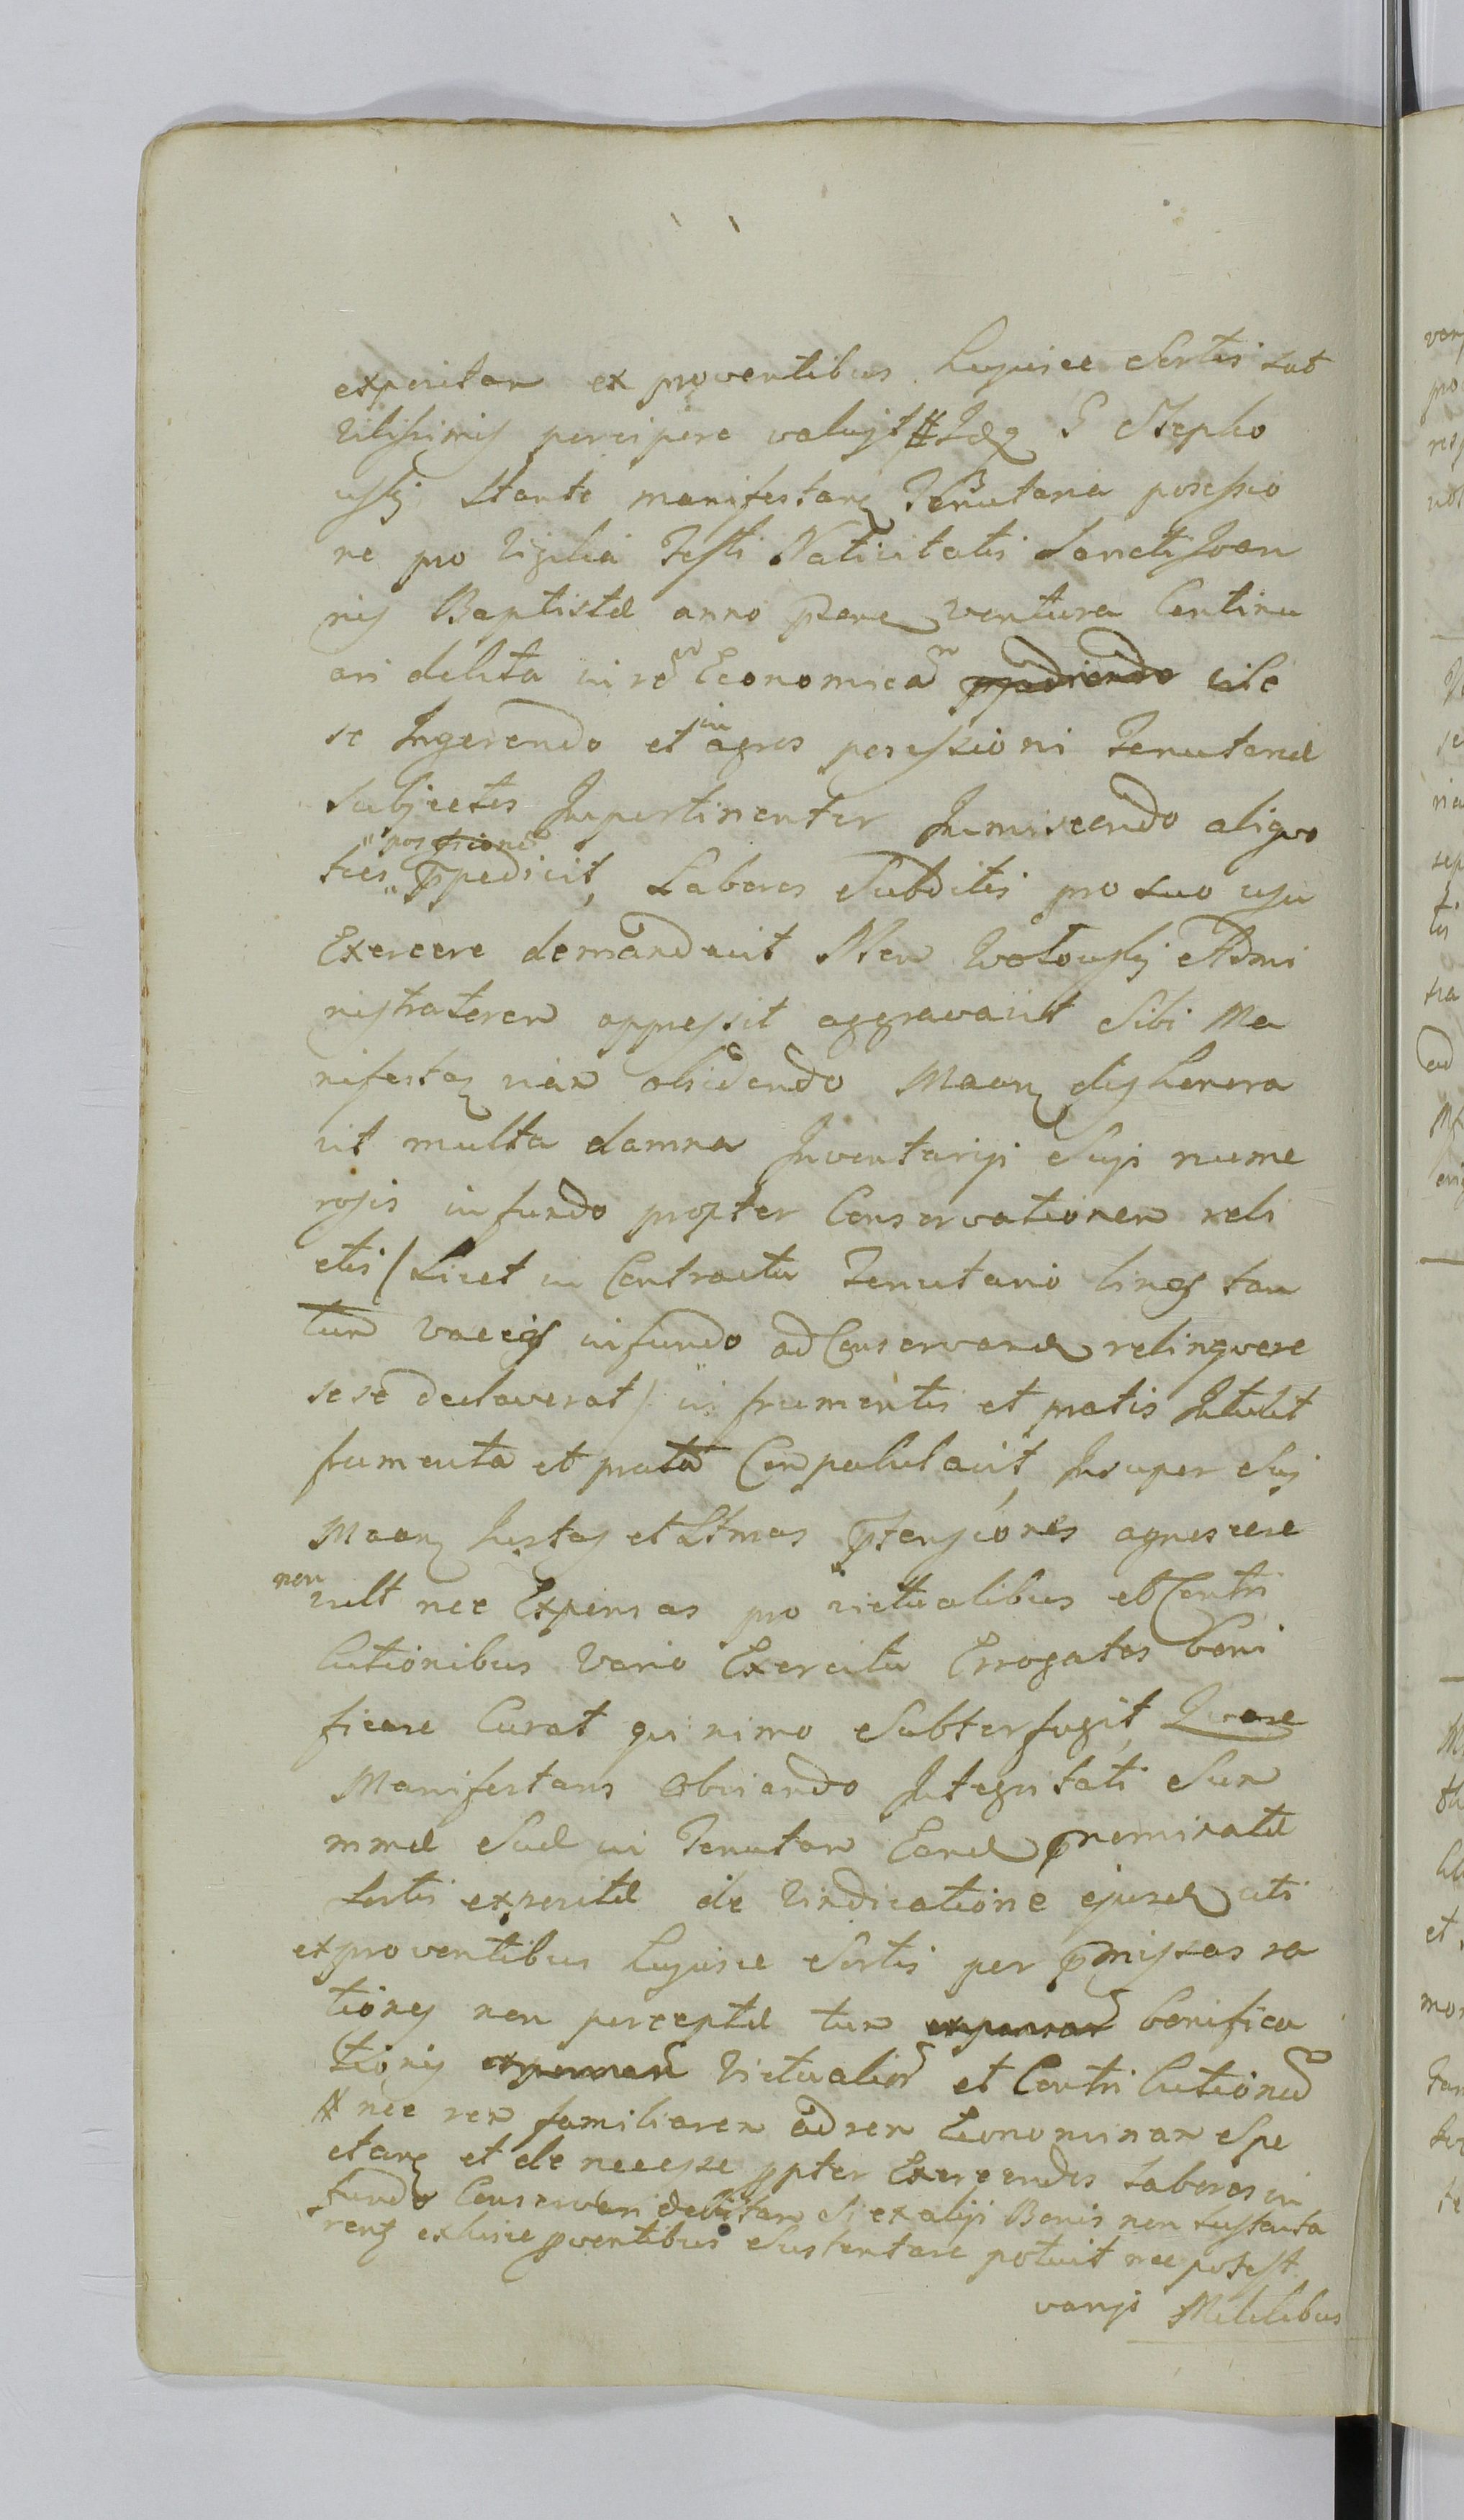 expositam ex proventibus hujusce Sortis sub
vilissimis percipere valuit # Idq G Stepko
usky stante manifestanq Tenutaria possessio
ne pro Vigilia Festi Nativitatis Sancti Joan
nis Baptistæ anno ventura Continu
ari debita in rē Economicā vile
se Ingerendo et in agros possessioni Tenutariæ
subjectos Impertinenter Inmiscendo aliquo
ties possessionē ppedivit, Labores Subditis pro suo usu
Exercere demandavit Ndem Wolousky Admi
nistratorem oppressit aggravavit Sibi Ma
nifestaq viam obsidendo Maanq dishonora
vit multa damna Inventarijs Suis nume
rosis in fundo propter Conservationem reli
ctis / Licet in Contractu Tenutario binas tan
tum vaccas in fundo ad Conservand relinqvere
sese declaverat / in frumentis et pratis Intulit
frumenta et prata Conpabulavit, Insuper Suj
Maanq Justas et Ltmas ptensiones agnoscere
non vult nec Expensas pro victualibus et Contri
butionibus Vario Exercitu Errogatas boni
ficare Curat qui nimo Subterfugit, Quare
Manifestans Obviando Integritati Sum
mmæ Suæ in Tenutam Eand pnominatæ
Sortis expositæ de Vindicatione ejusd uti
ex proventibus hujusce Sortis per pmissas ra
tiones non perceptæ tum bonifica
tionis Victualiū et Contributionū
# nec rem familiarem ad rem Economicam Spe
ctanq et de necesse ppter Exercendos Labores in
fundo Conservari debitam Si ex alijs Bonis non sustenta
renq ex huice pventibus Sustentare potuit nec potest
varijs Militibus